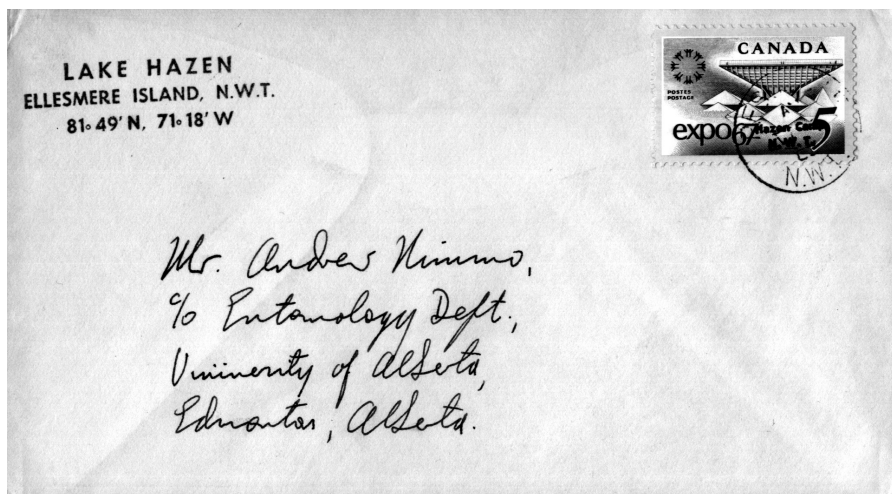 LAKE HAZEN
ELLESMERE ISLAND, N.W.T.
81° 49' N, 71° 18' W
CANADA
POSTES
POSTAGE
expo67
5
Hazen Camp
N.W.T.
N.W.T.
Mr. Andrew Nimmo,
c/o Entomology Dept.,
University of Alberta,
Edmonton, Alberta.